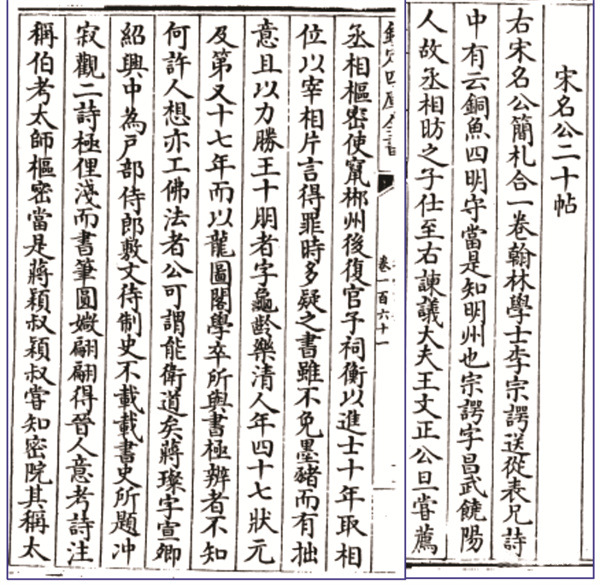 宋名公二十帖
右宋名公簡札合一卷翰林學士李宗諤送從表兄詩
中有云銅魚四明守當是知明州也宗諤字昌武饒陽
人故丞相昉之子仕至右諫議大夫王文正公旦嘗薦
卷一百六十一
丞相樞密使竄郴州後復官予祠衡以進士十年取相
位以宰相片言得罪時多疑之書雖不免墨豬而有拙
意且以力勝王十朋者字龜齡樂清人年四十七狀元
及第又十七年而以龍圖閣學卒所與書極辨者不知
何許人想亦工佛法者公可謂能衛道矣蔣璨字宣卿
紹興中為戶部侍郎敷文待制史不載載書史所題冲
寂觀二詩極俚淺而書筆圓媺翩翩得晉人意考詩注
稱伯考太師樞密當是蔣穎叔穎叔嘗知密院其稱太